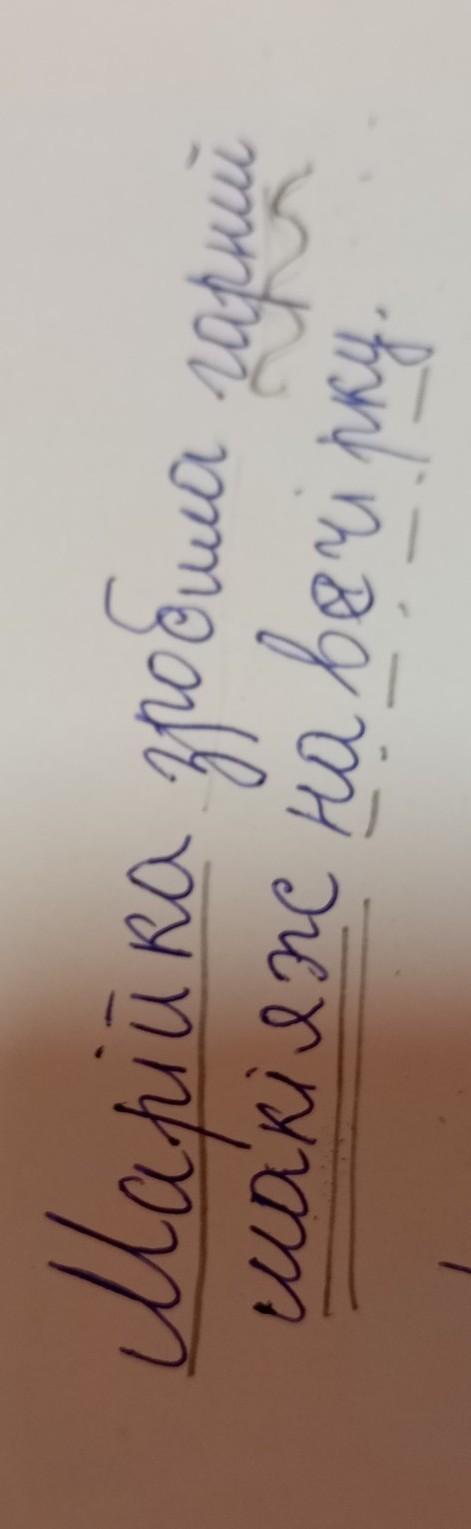 Марійка зробила гарний
макіяж на вечірку.